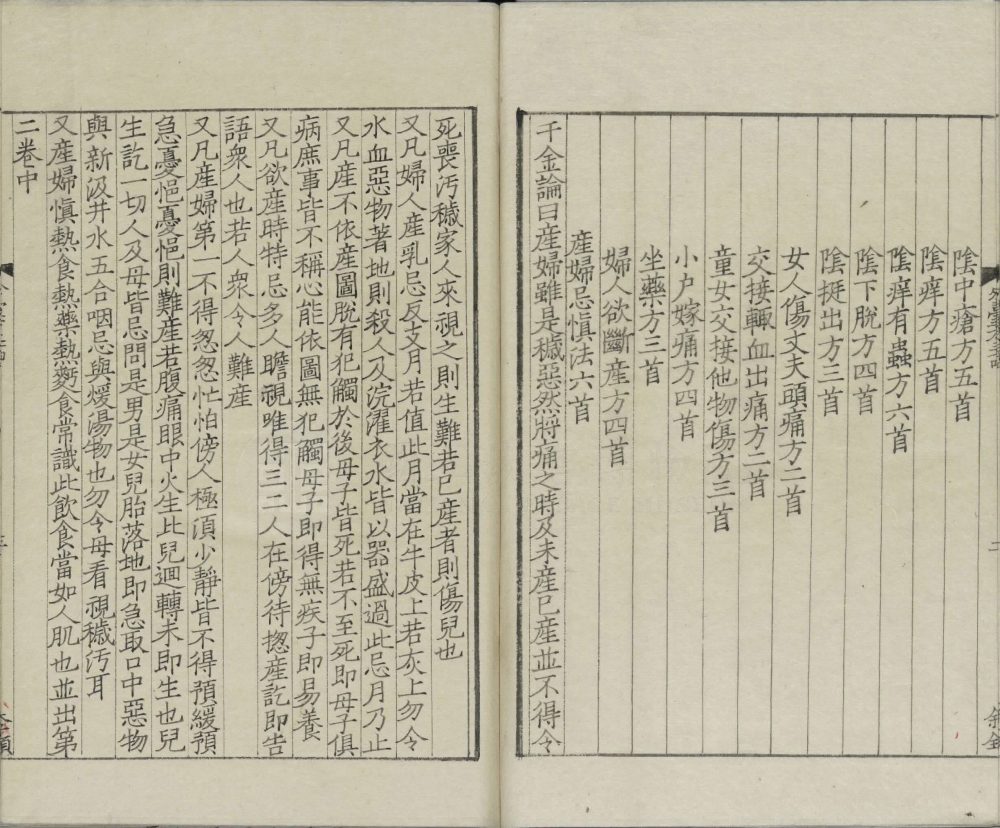 陰中瘡方五首
陰痒方五首
陰痒有蟲方六首
陰下脫方四首
陰挺出方三首
女人傷丈夫頭痛方二首
交接輙血出痛方二首
童女交接他物傷方三首
小户嫁痛方四首
坐藥方三首
婦人欲斷産方四首
産婦忌慎法六首
千金論曰産婦雖是穢惡然將痛之時及未産已産並不得令
死喪汚穢家人來視之則生難若已産者則傷兒也
又凡婦人産乳忌反支月若值此月當在牛皮上若灰上勿令
水血惡物著地則殺人及浣濯衣水皆以器盛過此忌月乃止
又凡産不依産圖脫有犯觸於後母子皆死若不至死即母子俱
病庶事皆不稱心能依圖無犯觸母子即得無疾子即易養
又凡欲産時特忌多人瞻視唯得三二人在傍待揔産訖即告
語衆人也若人衆令人難産
又凡産婦第一不得怱怱忙怕傍人極湏少靜皆不得預緩預
急憂悒憂悒則難産若腹痛眼中火生此兒迴轉未即生也兒
生訖一切人及母皆忌問是男是女兒胎落地即急取口中惡物
與新汲井水五合咽忌與煖湯物也勿令母看視穢汚耳
又産婦慎熱食熱藥熱麪食常識此飲食當如人肌也並出第
二卷中